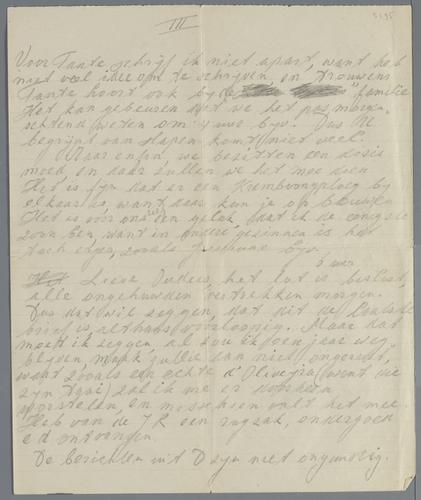 III
Voor Tante schrijf ik niet apart, want heb
niet veel idee om te schrijven, en trouwens
Tante hoort ook by de familie
Het kan gebeuren dat we het pas morgen-
ochtend weten om 4 uur byv. Dus U
begrijpt van slapen komt niet veel.
Maar enfin, we bezitten een dosis
moed, en daar zullen we het mee doen
Het is fyn dat er een ploeg by
elkaar is, want daar kun je op bouwen
Het is voor ons een geluk, dat ik de enigste
zoon ben, want in andere gezinnen is het
toch erger, zoals byv.
5 uur
Lieve Ouders, het lot is beslist,
alle ongehuwden vertrekken morgen.
Dus dat wil zeggen, dat dit de laatste
brief is, althans voorlopig. Maar dat
moet ik zeggen al zou ik een jaar weg
blyven, maak jullie dan niet ongerust,
want zoals een echte d'Oliveira (want die
zyn taai) zal ik me er doorheen
worstelen, en misschien valt het mee.
Heb van de J R een rugzak, ondergoed
e d ontvangen.
De berichten uit D zyn niet ongunstig.